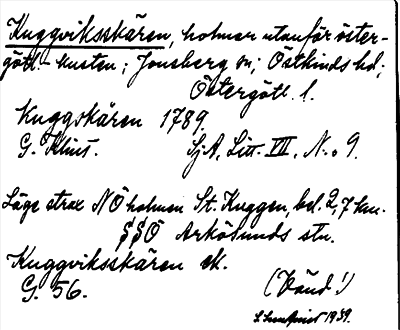 Kuggviksskären, holmar utanför öster-
götl.-kusten; Jonsberg sn; Östkinds hd;
Östergötl. l.
Kuggskären 1789.
G. Klint. Sj.A, Litt. VII, N:o 9.
Läge strax NÖ holmen St. Kuggen, bel. 2,7 km.
SSÖ Arkösunds stn.
Kuggviksskären ek.
G. 56. (Känd!)
1939.